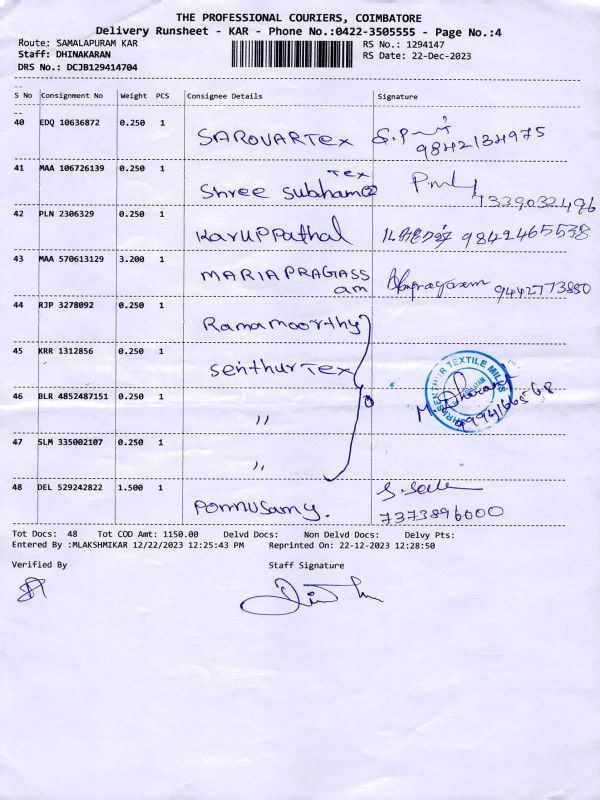 THE PROFESSIONAL COURIERS, COIMBATORE
Delivery Runsheet - KAR - Phone No.:0422-3505555 - Page No.:4
Route: SAMALAPURAM KAR
RS No.: 1294147
Staff: DHINAKARAN
RS Date: 22-Dec-2023
DRS No.: DCJB129414704
S No Consignment No Weight PCS Consignee Details Signature
40 EDQ 10636872 0.250 1 SAROVARTex
9842134975
41 MAA 106726139 0.250 1 Shree Subham Tex
7339032496
42 PLN 2306329 0.250 1 Karuppathal 9842465538
43 MAA 570613129 3.200 1 MARIAPRAGASSam 9442773850
44 RJP 3278092 0.250 1 Ramamoorthy
45 KRR 1312856 0.250 1 Senthur Tex
SHRI SENTHUR TEXTILE MILLS
46 BLR 4852487151 0.250 1 "
47 SLM 335002107 0.250 1 "
48 DEL 529242822 1.500 1 Ponnusamy.
7373896000
Tot Docs: 48 Tot COD Amt: 1150.00 Delvd Docs: Non Delvd Docs: Delvy Pts:
Entered By :MLAKSHMIKAR 12/22/2023 12:25:43 PM Reprinted On: 22-12-2023 12:28:50
Verified By Staff Signature